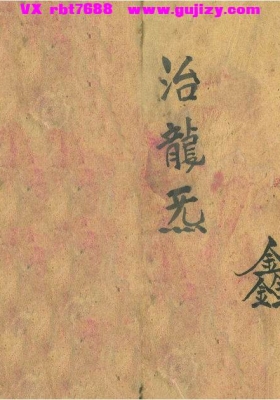 VX rbt7688 www.gujizy.com
治龍炁